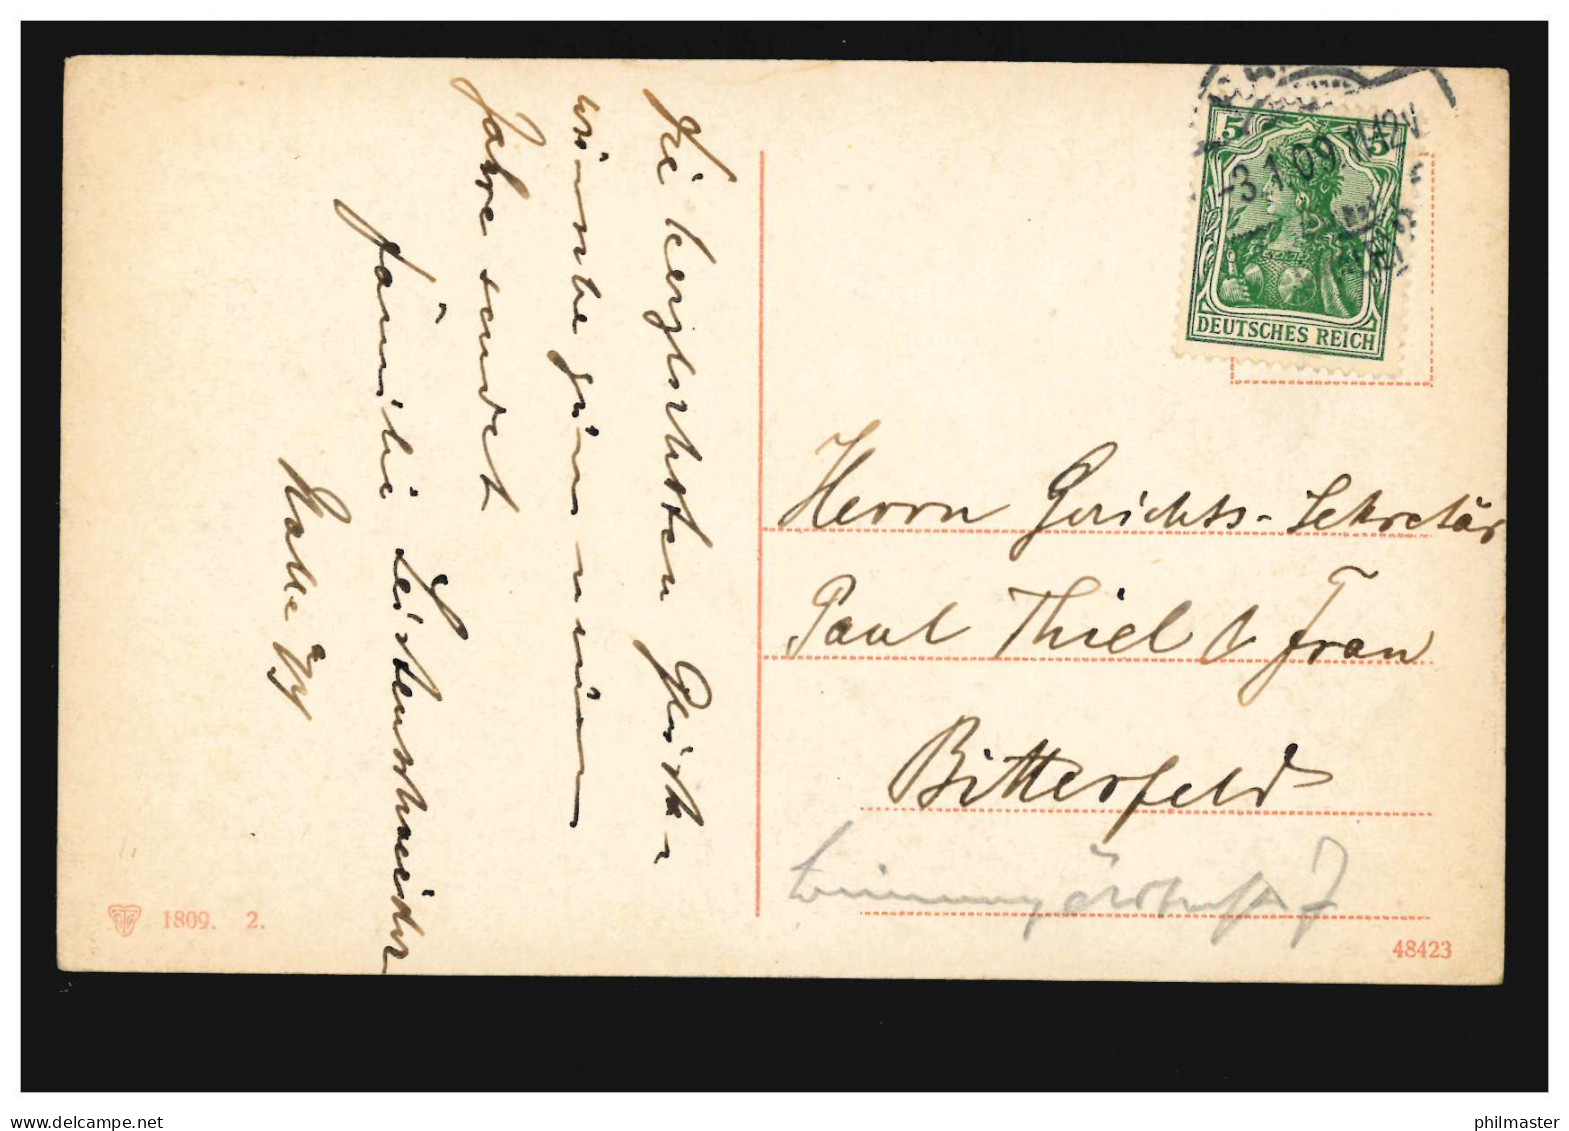 Die herzlichsten Glück-
wünsche zum neuen
Jahre sendet
Familie Leistenschneider
Halle
5 5
-3.1.09.11-12V
DEUTSCHES REICH
Herrn Gerichts-Sekretär
Paul Thiel & Frau
Bitterfeld
7
1809. 2.
48423
www.delcampe.net
philmaster